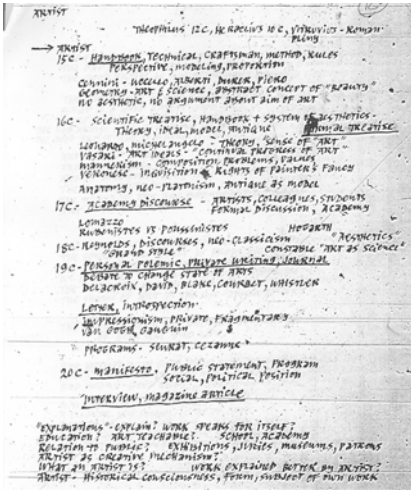 ARTIST
THEOPHILUS 12C, HERACLIUS 10C, VITRUVIUS - ROMAN
PLINY
→ ARTIST
15C - HANDBOOK, TECHNICAL, CRAFTSMAN, METHOD, RULES
PERSPECTIVE, MODELING, PROPORTION
CENNINI - UCCELLO, ALBERTI, DURER, PIERO
GEOMETRY - ART & SCIENCE, ABSTRACT CONCEPT OF "BEAUTY"
NO AESTHETIC, NO ARGUMENT ABOUT AIM OF ART
16C - SCIENTIFIC TREATISE, HANDBOOK + SYSTEM OF AESTHETICS -
THEORY, IDEAL, MODEL, ANTIQUE FORMAL TREATISE
LEONARDO, MICHELANGELO - THEORY, "SENSE OF "ART"
VASARI - ART IDEALS - "CONTINUAL PROGRESS OF ART"
MANNERISM - COMPOSITION, PROBLEMS, VALUES
VERONESE - INQUISITION RIGHTS OF PAINTER'S FANCY
ANATOMY, NEO-PLATONISM, ANTIQUE AS MODEL
17C - ACADEMY DISCOURSE - ARTISTS, COLLEAGUES, STUDENTS
FORMAL DISCUSSION, ACADEMY
LOMAZZO
RUBENISTES VS POUSSINISTES HOGARTH
18C - REYNOLDS, DISCOURSES, NEO-CLASSICISM "AESTHETICS"
"GRAND STYLE" CONSTABLE "ART AS SCIENCE"
19C - PERSONAL POLEMIC, PRIVATE WRITING, JOURNAL
DEBATE TO CHANGE STATE OF ARTS
DELACROIX, DAVID, BLAKE, COURBET, WHISTLER
LETTER, INTROSPECTION
IMPRESSIONISM, PRIVATE, FRAGMENTARY
VAN GOGH, GAUGUIN
PROGRAMS - SEURAT, CEZANNE
20C - MANIFESTO, PUBLIC STATEMENT, PROGRAM
SOCIAL, POLITICAL POSITION
INTERVIEW, MAGAZINE ARTICLE
"EXPLANATIONS" - EXPLAIN? WORK SPEAKS FOR ITSELF?
EDUCATION? ART TEACHABLE? SCHOOL, ACADEMY
RELATION TO PUBLIC? EXHIBITIONS, JURIES, MUSEUMS, PATRONS
ARTIST AS CREATIVE MECHANISM?
WHAT AN ARTIST IS? WORK EXPLAINED BETTER BY ARTIST?
ARTIST - HISTORICAL CONSCIOUSNESS, FORM, SUBJECT OF OWN WORK